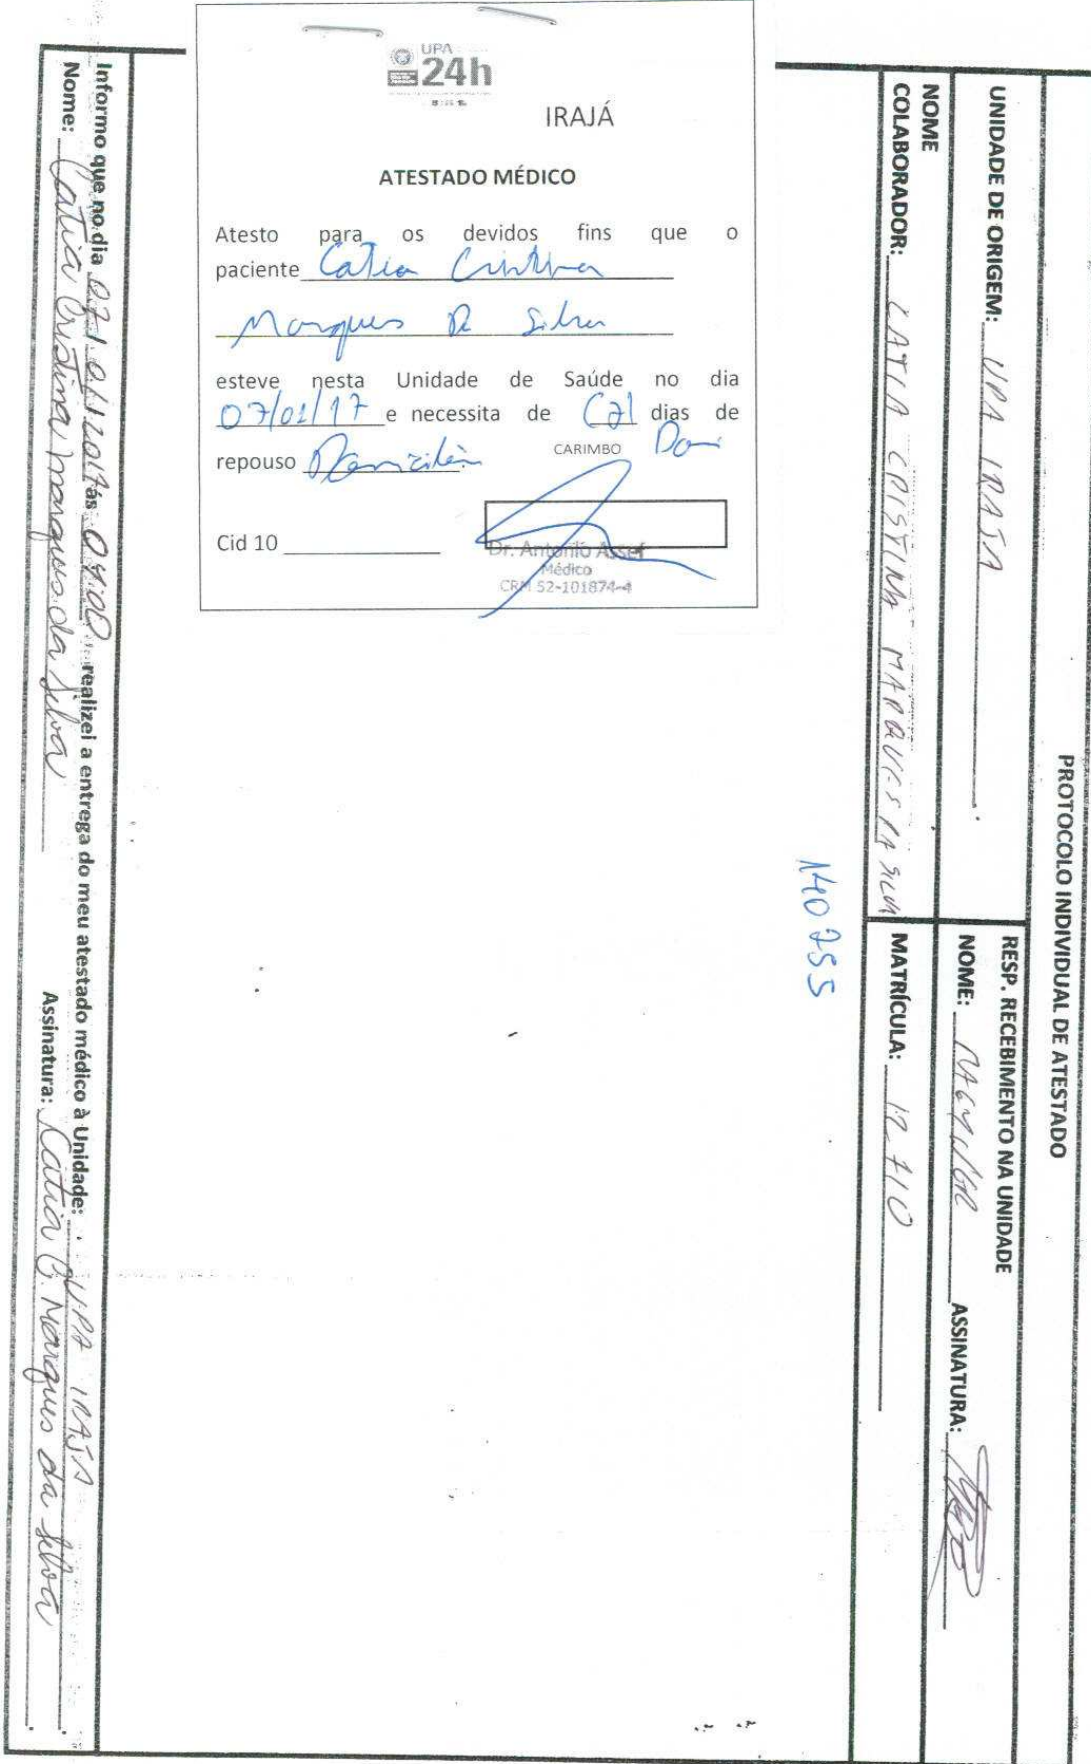 PROTOCOLO INDIVIDUAL DE ATESTADO
UNIDADE DE ORIGEM: UPA IRAJA
RESP. RECEBIMENTO NA UNIDADE
NOME: ASSINATURA:
NOME
COLABORADOR: CATIA CRISTINA MARQUES DA SILVA
MATRÍCULA: 12710
140255
UPA
24h
IRAJÁ
ATESTADO MÉDICO
Atesto para os devidos fins que o
paciente Catia Cristina
Marques Da Silva
esteve nesta Unidade de Saúde no dia
07/01/17 e necessita de dias de
repouso Domiciliar
CARIMBO Dois
Cid 10
Dr. Antonio Assef
Médico
CRM 52-101874-4
Informo que no dia 07/01/2017 ás realizei a entrega do meu atestado médico à Unidade: UPA IRAJA
Nome: Catia Cristina marques da Silva Assinatura: Catia C. Marques da Silva